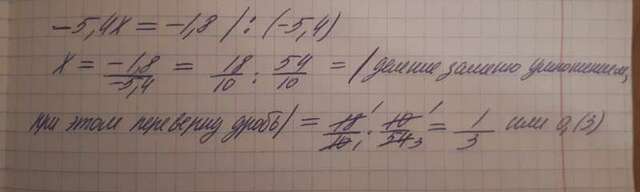 -5,4x = -1,8 / : (-5,4)
x = -1,8/-5,4 = 18/10 : 54/10 = /деление заменю умножением,
при этом переверну дробь/ = 18/10 · 10/54 = 1/3 или 0,(3)